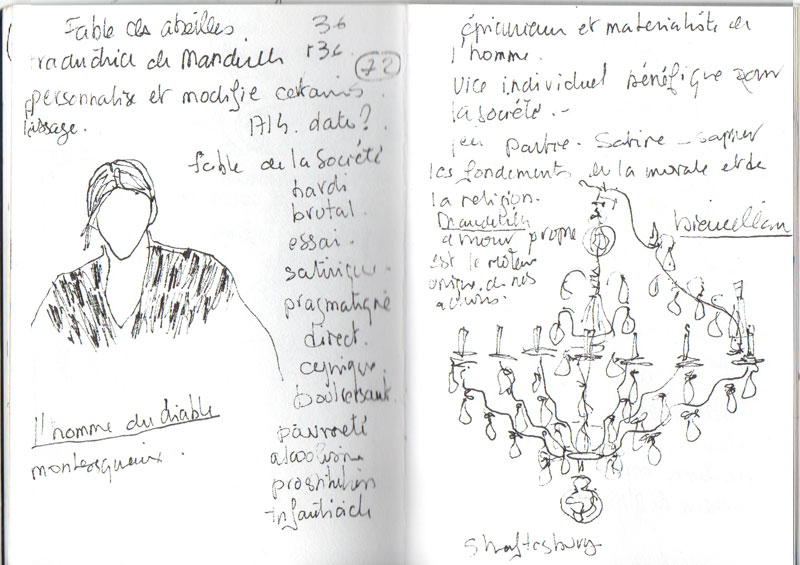 Fable des abeilles.
36
traductrice de Mandeville
+36
72
personnalise et modifie certains
passage.
1714. date?
fable de la Société
hardi
brutal.
essai.
satirique.
pragmatique
direct.
cynique.
bouleversant.
pauvreté
alcoolisme
prostitution
infanticide
l'homme du diable
montesquieu.
épicurien et materialiste de
l'homme.
vice individuel bénéfique pour
la société.-
Satire - saper
les fondements de la morale et de
la religion.
Mandeville
amour propre
est le moteur
unique de nos
actions.
Shaftesbury